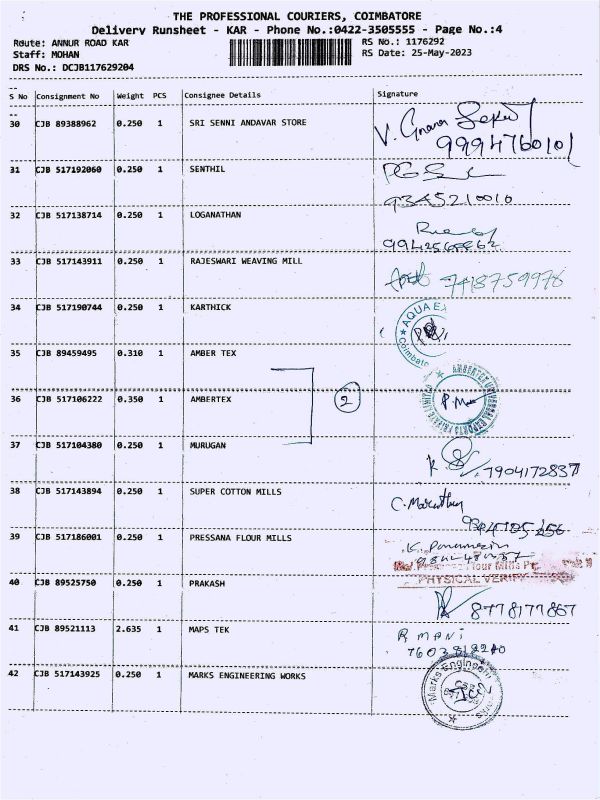 THE PROFESSIONAL COURIERS, COIMBATORE
Delivery Runsheet - KAR - Phone No.:0422-3505555 - Page No.:4
Route: ANNUR ROAD KAR
Staff: MOHAN
DRS No.: DCJB117629204
RS No.: 1176292
RS Date: 25-May-2023
S No Consignment No Weight PCS Consignee Details Signature
30 CJB 89388962 0.250 1 SRI SENNI ANDAVAR STORE
9994760101
31 CJB 517192060 0.250 1 SENTHIL
9345210010
32 CJB 517138714 0.250 1 LOGANATHAN
33 CJB 517143911 0.250 1 RAJESWARI WEAVING MILL 7418759976
34 CJB 517190744 0.250 1 KARTHICK
AQUA EX
Coimbato
35 CJB 89459495 0.310 1 AMBER TEX
36 CJB 517106222 0.350 1 AMBERTEX 2
37 CJB 517104380 0.250 1 MURUGAN
7904172837
38 CJB 517143894 0.250 1 SUPER COTTON MILLS
39 CJB 517186001 0.250 1 PRESSANA FLOUR MILLS
PHYSICAL VERIF
40 CJB 89525750 0.250 1 PRAKASH
8778177867
41 CJB 89521113 2.635 1 MAPS TEK R MANI
42 CJB 517143925 0.250 1 MARKS ENGINEERING WORKS